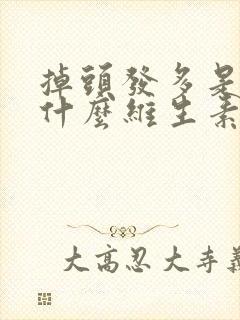 掉頭發多是
什麼維生素
大高忍大寺